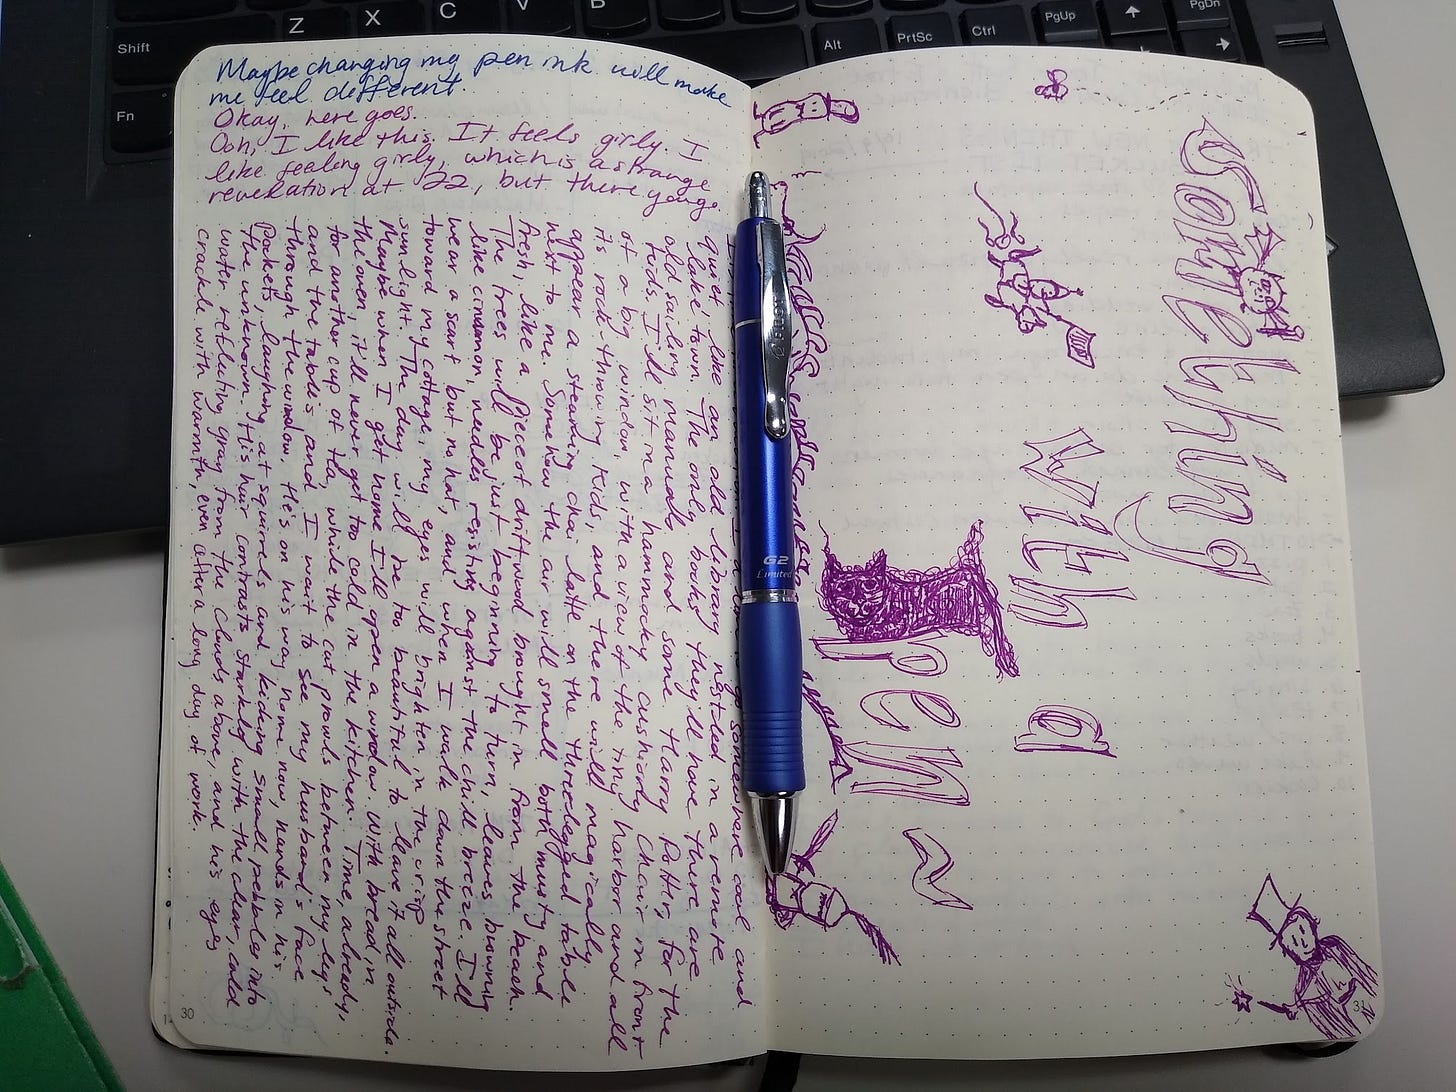 Maybe changing my pen ink will make
me feel different.
Okay, here goes.
Ooh, I like this. It feels girly. I
like feeling girly, which is a strange
revelation at 22, but there youge
somewhere cool and
quiet, like an old library nestled in a remote
lake town. The only books they'll have there are
old sailing manuals and some Harry Potter, for the
kids. I'll sit in a hammocky, cushiony chair in front
of a big window with a view of the tiny harbor and all
its rock throwing kids, and there will magically
appear a steaming chai latte on the threelegged table
next to me. Somehow the air will smell both musty and
fresh, like a piece of driftwood brought in from the beach.
The trees will be just beginning to turn, leaves browning
like cinnamon, needles resisting against the chill breeze. I'll
wear a scarf but no hat, and when I walk down the street
toward my cottage, my eyes will brighten in the crisp
sunlight. The day will be too beautiful to leave it all outside.
Maybe when I get home I'll open a window. With bread in
the oven, it'll never get too cold in the kitchen. Time, already,
for another cup of tea, while the cat prowls between my legs
and the table's and I wait to see my husband's face
through the window. He's on his way home now, hands in his
pockets, laughing at squirrels and kicking small pebbles into
the unknown. His hair contrasts starkly with the clear, cold
water reflecting gray from the clouds above, and his eyes
crackle with warmth, even after a long day of work.
30
Something
with a
pen
31
G2
Limited
PILOT
Shift
Z
X
C
V
B
Fn
Alt
PrtSc
Ctrl
PgUp
PgDn